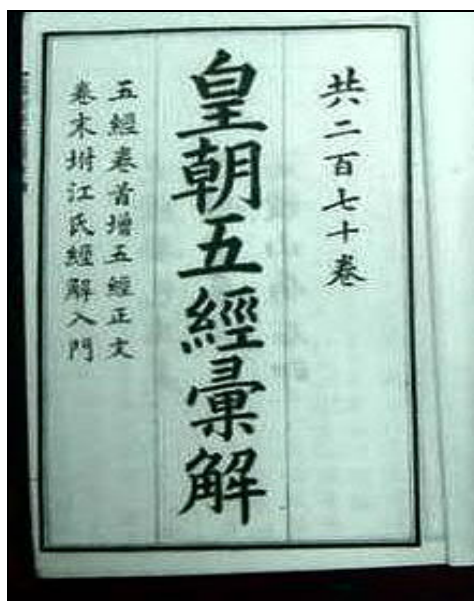 共二百七十卷
皇朝五經彙解
五經卷首增五經正文
卷末坿江氏經解入門